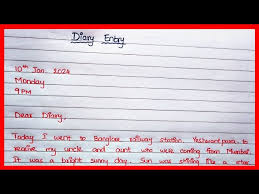 Diary Entry
10th Jan. 2024
Monday
9 PM
Dear Diary,
Today I went to Banglore railway station, Yeshwantpura, to
receive my uncle and aunt who were coming from Mumbai.
It was a bright sunny day. Sun was shining like a star